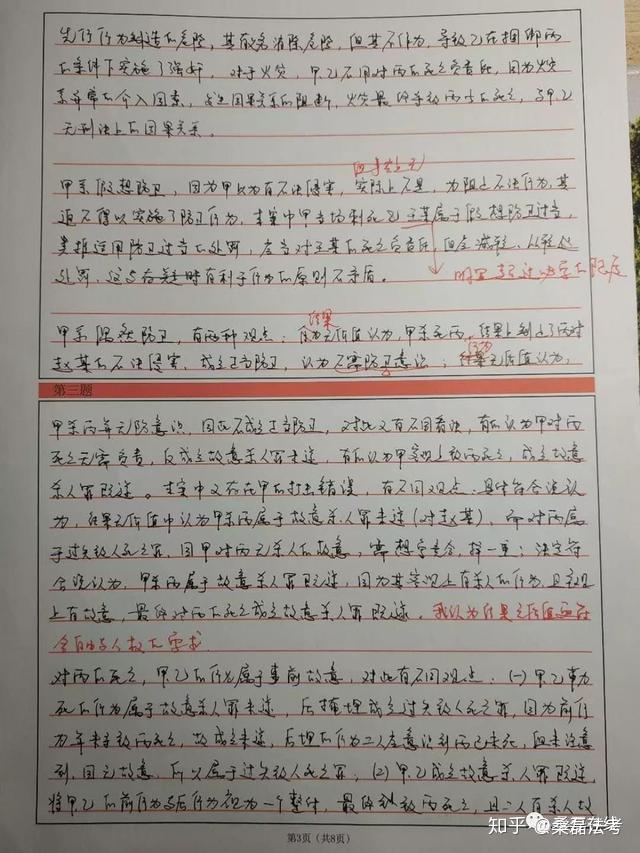 先行行为制造的危险，其有义务消除危险，但其不作为，导致乙在捆绑丙
的条件下实施了强奸。对于火灾，甲乙不用对丙的死亡负责，因为火灾
系异常的介入因素，引起因果关系的阻断，火灾最终导致丙的死亡，与甲乙
无刑法上的因果关系。
甲系假想防卫，因为甲以为有不法侵害，实际上不是，为阻止不法行为，其
迫不得以实施了防卫行为，本案中甲当场刺死王某属于假想防卫过当，
类推适用防卫过当的处罚，应当对王某的死亡负责，但应减轻、从轻处
处罚，这与存疑时有利于行为的原则不矛盾。
明显超过必要的限度
甲系偶然防卫，有两种观点：结果无价值认为，甲杀死丙，结果上制止了丙对
赵某的不法侵害，成立正当防卫，认为不需防卫意识；行为无价值认为，
第三题
甲杀丙并无防意识，因此不成立正当防卫，对此又有不同看法，有的认为甲对丙
死亡无需负责，仅成立故意杀人罪未遂，有的认为甲客观上致丙死亡，成立故意
杀人罪既遂。本案中又存在甲的打击错误，有不同观点：具体符合说认
为，结果无价值中认为甲杀丙属于故意杀人罪未遂（对赵某），而对丙属
于过失致人死亡罪，因甲对丙无杀人的故意，需想象竞合，择一重；法定符
合说认为，甲杀丙属于故意杀人罪既遂，因为其客观上有杀人的行为，且主观
上有故意，最终对丙的死亡成立故意杀人罪既遂。我认为结果无价值更符
合自由与人权的要求
对丙的死亡，甲乙的行为属于事前故意，对此有不同观点：（一）甲乙事为
死的行为属于故意杀人罪未遂，后掩埋成立过失致人死亡罪，因为前行
为并未致丙死亡，故成立未遂，后埋的行为二人应意识到丙已未死，但未注意
到，因无故意，所以属于过失致人死亡罪；（2）甲乙成立故意杀人罪既遂，
将甲乙的前行为与后行为视为一个整体，最终致丙死亡，且二人有杀人故
第3页（共8页）
知乎 @桑磊法考